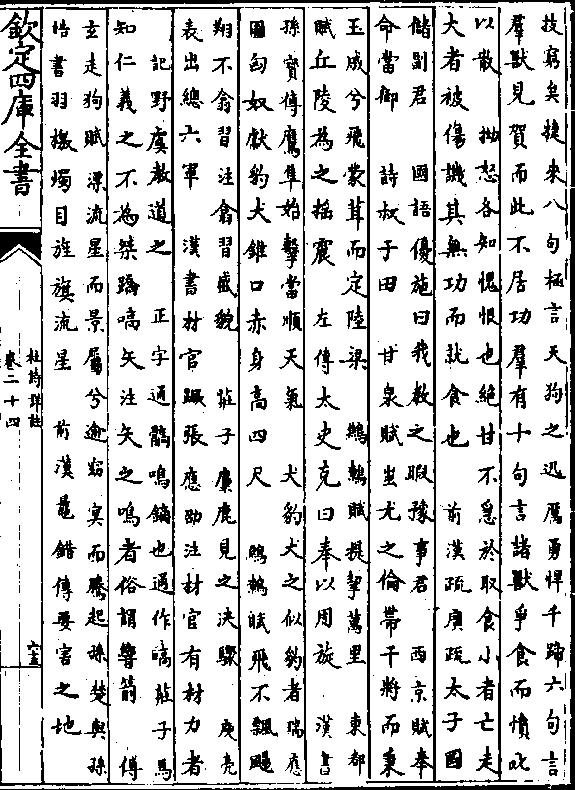 技窮矣捷來八句極言天狗之迅鷹勇悍千蹄六句言
羣獸見賀而此不居功羣有十句言諸獸爭食而憤叱
以散 拗怒各知愧恨也絶甘不急於取食小者亡走
大者被傷譏其無功而就食也 前漢疏廣疏太子國
儲副君 國語優施曰我教之暇豫事君 西京賦奉
命當御 詩叔于田 甘泉賦蚩尤之倫帶干將而秉
玉戚兮飛蒙茸而定陸梁 鷦鷯賦提挈萬里 東都
賦丘陵為之揺震 左傳太史克曰奉以周旋 漢書
孫寳傳鷹隼始擊當順天氣 犬豹犬之似豹者瑞應
圖匈奴獻豹犬錐口赤身高四尺 鷦鷯賦飛不飄颺
翔不翕習注翕習盛貌 莊子麋鹿見之決驟 庾亮
表出總六軍 漢書材官蹶張應劭注材官有材力者
記野虞教道之 正字通髇鳴鏑也通作嚆莊子焉
知仁義之不為桀蹠嚆矢注矢之鳴者俗謂響箭 傅
玄走狗賦漂流星而景屬兮逾窈冥而騰起孫楚與孫
皓書羽檄燭目旌旗流星 前漢鼂錯傳要害之地
欽定四庫全書
杜詩詳註
卷二十四
六五